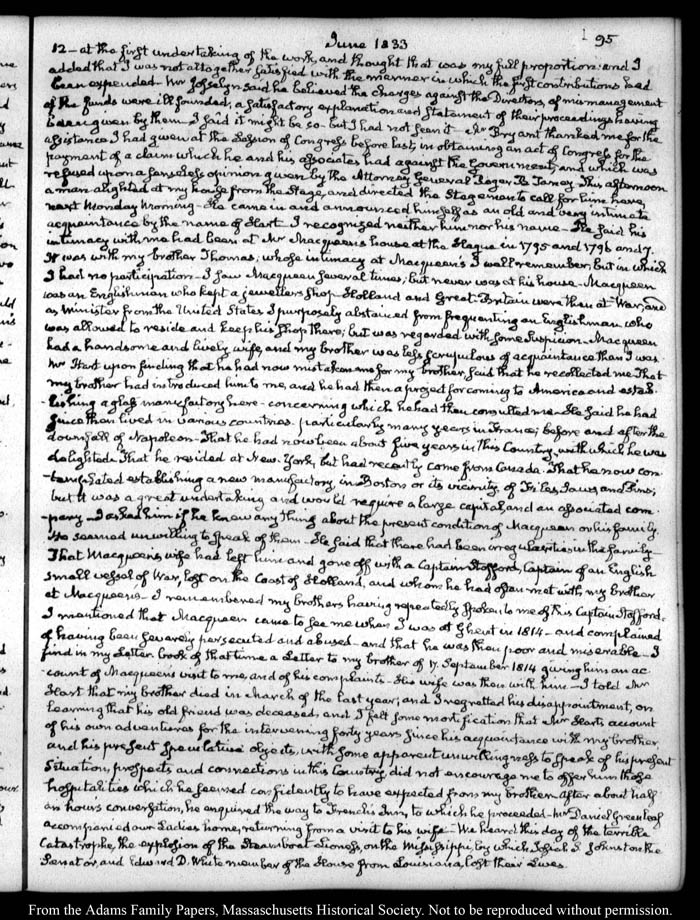 June 1833
95
12 - at the first undertaking of the work, and thought that was my full proportion: and I
added that I was not altogether satisfied with the manner in which the first contributions had
been expended - Mr Josselyn said he believed the charges against the Directors, of mismanagement
of the funds were ill founded, a satisfactory explanation and Statement of their proceedings having
been given by them - I said it might be so - but I had not seen it - Mr Bryant thanked me for the
assistance I had given at the Session of Congress before last, in obtaining an act of Congress for the
payment of a claim which he and his associates had against the Government, and which was
refused upon a senseless opinion given by the Attorney General Roger B. Taney. This afternoon
a man alighted at my house from the Stage, and directed the Stageman to call for him here,
next Monday morning - He came in and announced himself as an old and very intimate
acquaintance by the name of Hart. I recognised neither him nor his name - He said his
intimacy with me had been at Mr Macqueen's house at the Hague in 1795 and 1796 and 7.
It was with my brother Thomas; whose intimacy at Macqueen's I well remember, but in which
I had no participation - I saw Macqueen several times; but never was at his house - Macqueen
was an Englishman who kept a jewellers shop - Holland and Great-Britain were then at War, and
as Minister from the United States I purposely abstained from frequenting an Englishman who
was allowed to reside and keep his shop there; but was regarded with some suspicion - Macqueen
had a handsome and lively wife, and my brother was less scrupulous of acquaintance than I was.
Mr Hart upon finding that he had now mistaken me for my brother, said that he recollected me. That
my brother had introduced him to me, and he had then a project for coming to America and estab-
-lishing a glass manufactory here - concerning which he had then consulted me - He said he had
since then lived in various countries. particularly many years in France; before and after the
downfall of Napoleon - That he had now been about five years in this Country, with which he was
delighted. That he resided at New-York, but had recently come from Canada. That he now con-
-templated establishing a new manufactory, in Boston or its vicinity, of Files, Saws, and Pins;
but it was a great undertaking and would require a large capital, and an associated com-
-pany - I asked him if he knew any thing about the present condition of Macqueen or his family.
He seemed unwilling to speak of them - He said that there had been irregularities in the family -
That Macqueen's wife had left him and gone off with a Captain Stafford, Captain of an English
small vessel of War, lost on the Coast of Holland, and whom he had often met with my brother
at Macqueen's - I remembered my brothers having repeatedly spoken to me of this Captain Stafford.
I mentioned that Macqueen came to see me when I was at Ghent in 1814 - and complained
of having been severely persecuted and abused - and that he was then poor and miserable - I
find in my Letter book of that time a Letter to my brother of 17. September 1814 giving him an ac-
count of Macqueen's visit to me, and of his complaints - His wife was then with him - I told Mr
Hart that my brother died in March of the last year; and I regretted his disappointment, on
learning that his old friend was deceased; and I felt some mortification that Mr Hart's account
of his own adventures for the intervening forty years since his acquaintance with my brother
and his present speculative objects, with some apparent unwillingness to speak of his present
situation, prospects and connections in this Country, did not encourage me to offer him those
hospitalities which he seemed confidently to have expected from my brother. After about half
an hours conversation, he enquired the way to French's Inn, to which he proceeded - Mr Daniel Greenleaf
accompanied our Ladies home, returning from a visit to his wife - We heard this day of the terrible
Catastrophe, the explosion of the Steamboat Lioness, on the Mississippi, by which Josiah S. Johnston the
Senator, and Edward D. White member of the House from Louisiana, lost their Lives.
From the Adams Family Papers, Massachusetts Historical Society. Not to be reproduced without permission.